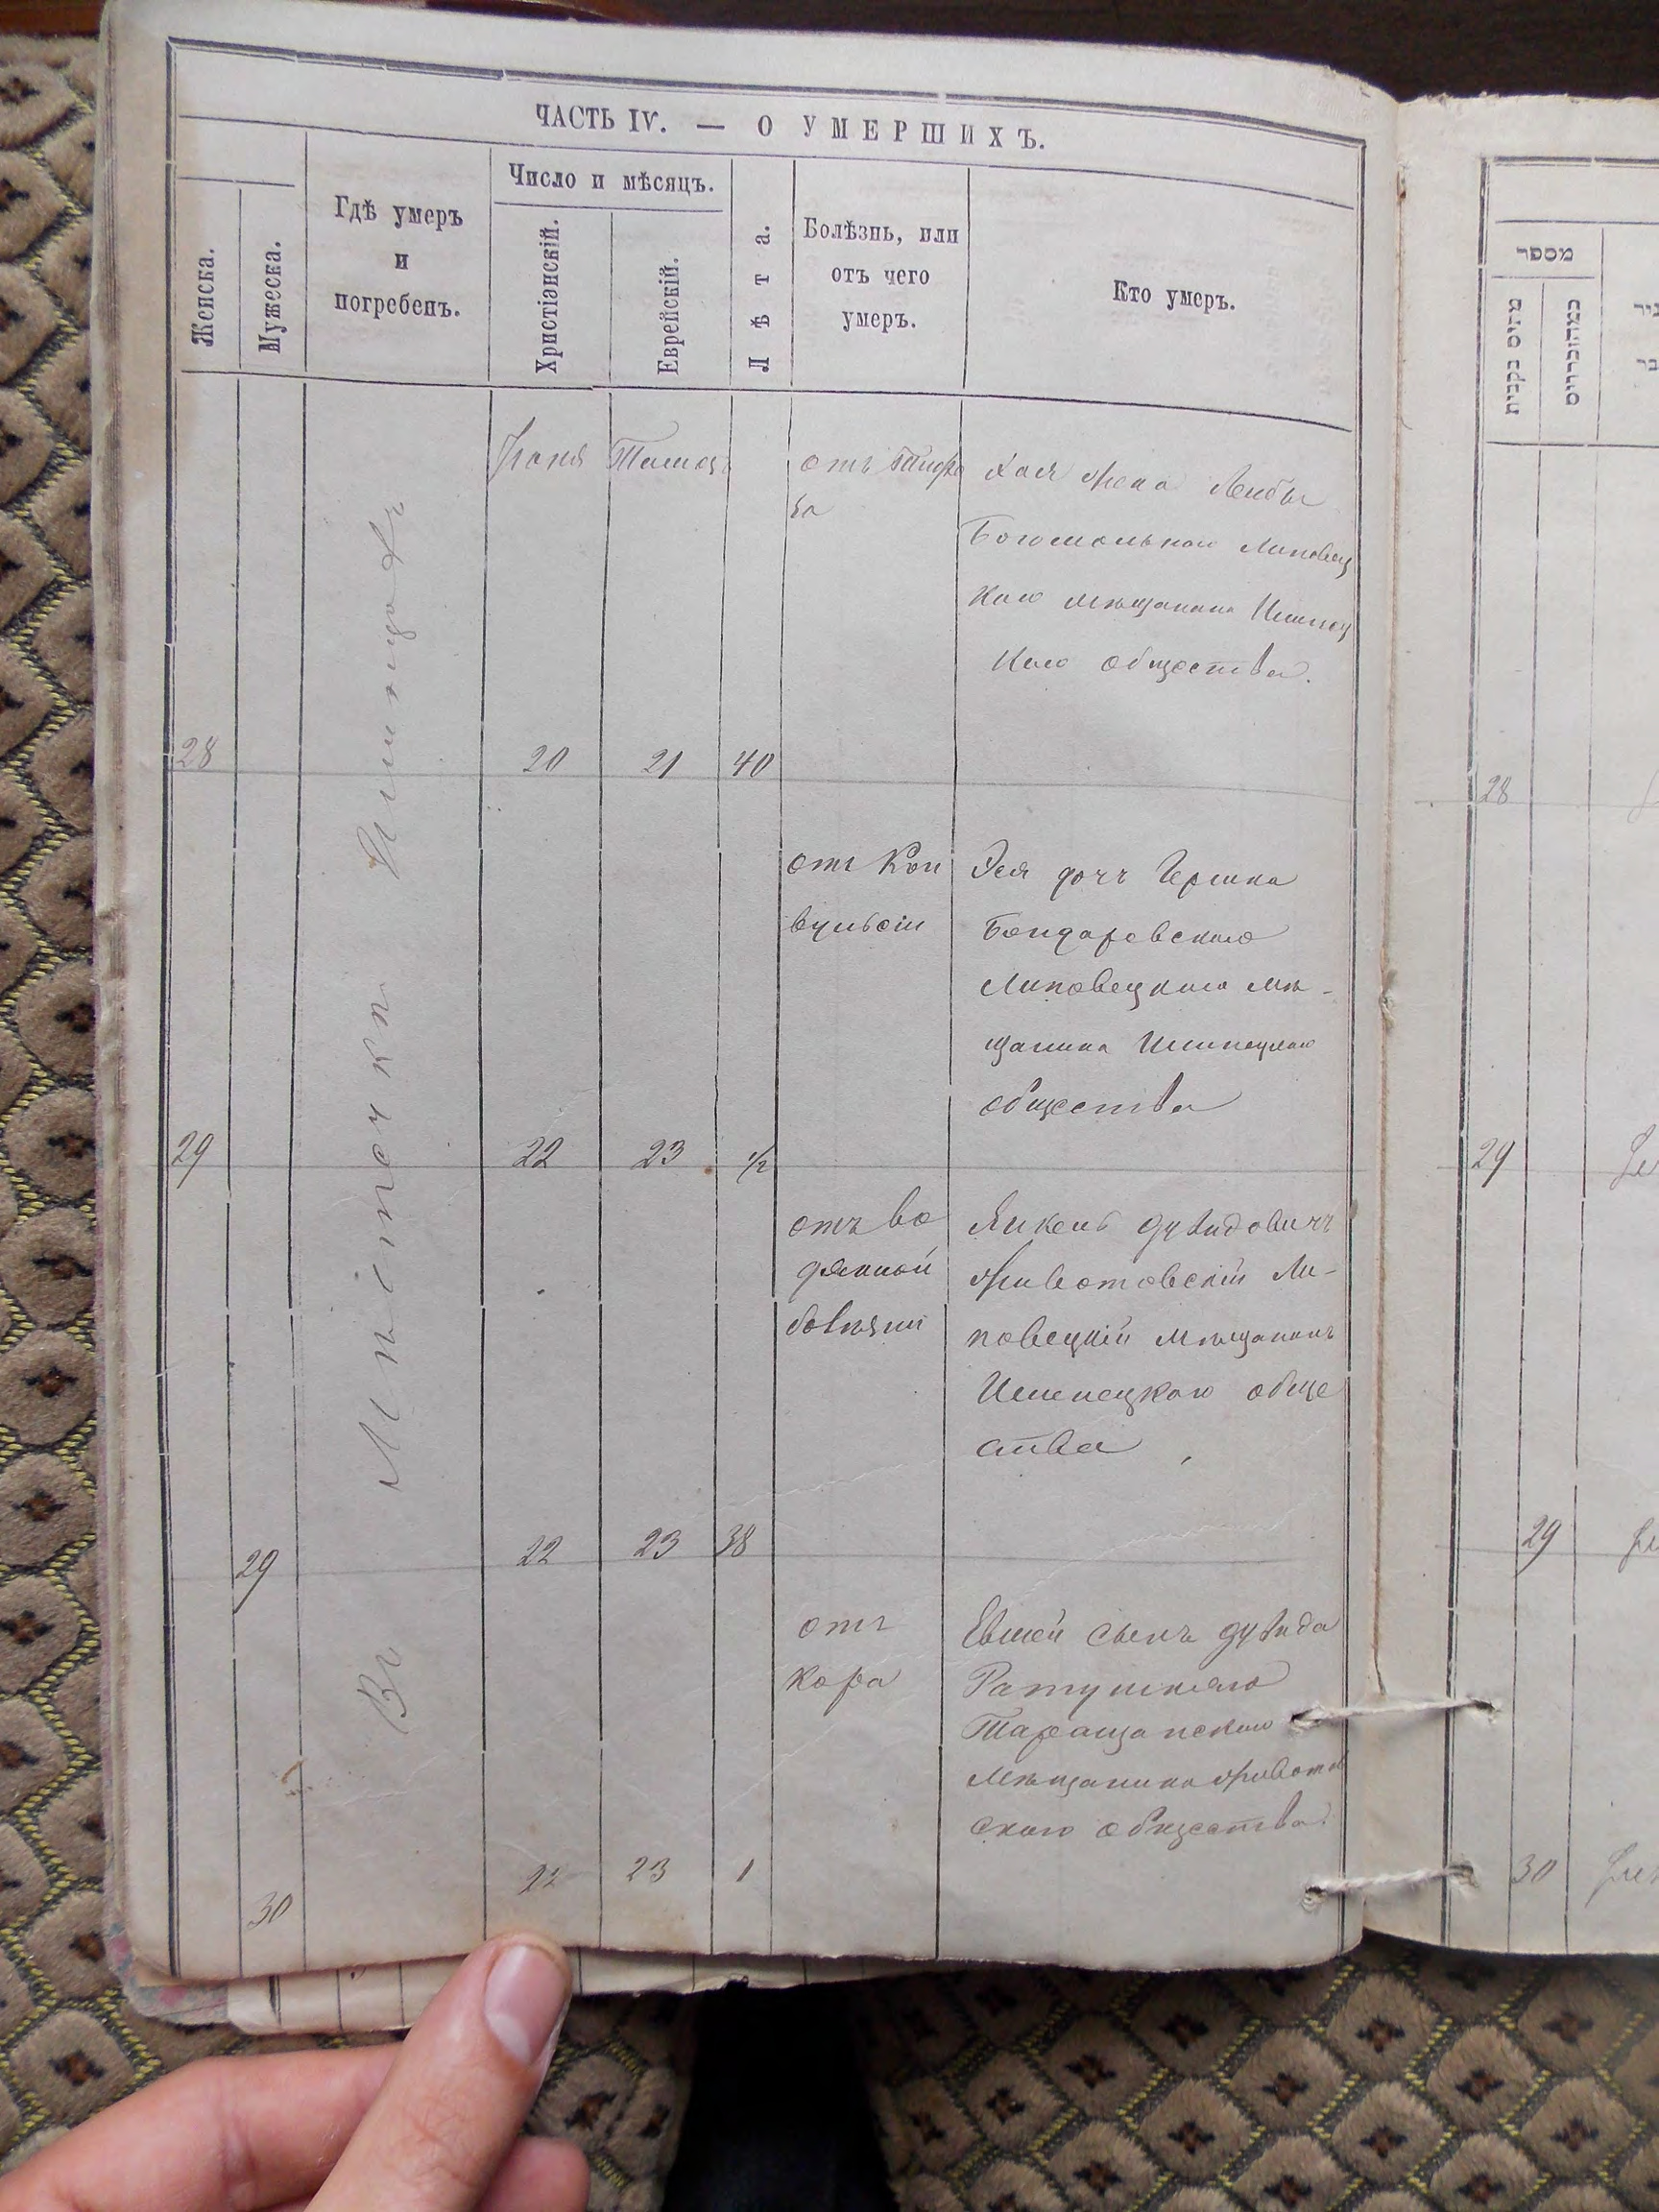 ЧАСТЬ IV. — О УМЕРШИХЪ.
Женска.
Мужеска.
Гдѣ умеръ
и
погребенъ.
Число и мѣсяцъ.
Христіанскій.
Еврейскій.
Лѣта.
Болѣзнь, или
отъ чего
умеръ.
Кто умеръ.
Въ Мѣстечки
Іюня
Тамузъ
отъ Тифо
за
Хая жена Лейбы
Богомольнаго Липовец
каго мѣщанина Илинец
каго общества.
28
20
21
40
отъ Кон
вульсіи
Эся дочъ Гершка
Бондаревскаго
Липовецкаго мѣ-
щанина Илинецкаго
общества
29
22
23
1/2
отъ во
дянной
болѣзни
Янкель Дувидовичъ
Животовскій Ли-
повецкій мѣщанинъ
Илинецкаго обще
ства
29
22
23
38
отъ
кора
Евшей сынъ Дувида
Ратушняго
Таращанскаго
мѣщанина Животов
скаго общества.
30
22
23
1
מספר
28
29
29
30